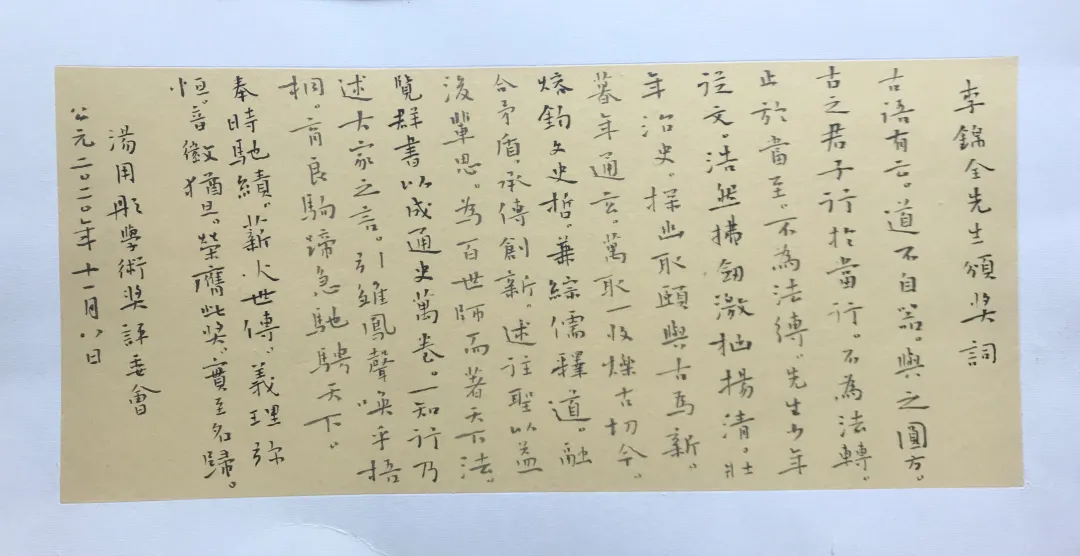 李錦全先生頒奖詞
古語有云。道不自器。與之圓方。
古之君子行於當行。不為法轉。
止於當至。不為法縛。先生少年
從文。浩然揚劍激浊揚清。壯
年治史。探幽取頤與古為新。
暮年通玄。萬取一收爍古切今。
熔鈞文史哲。兼綜儒釋道。融
合矛盾。承傳創新。述往聖以益
後輩思。為百世師而著天下法。
覽群書以成通史萬卷。一知行乃
述大家之言。引雛鳳聲唤乎梧
桐。育良駒蹄急馳騁天下。
奉時馳績。薪火世傳。義理弥
恒。音徽猶是。榮膺此奖。實至名歸。
湯用彤學術奖評委會
公元二〇二〇年十一月八日